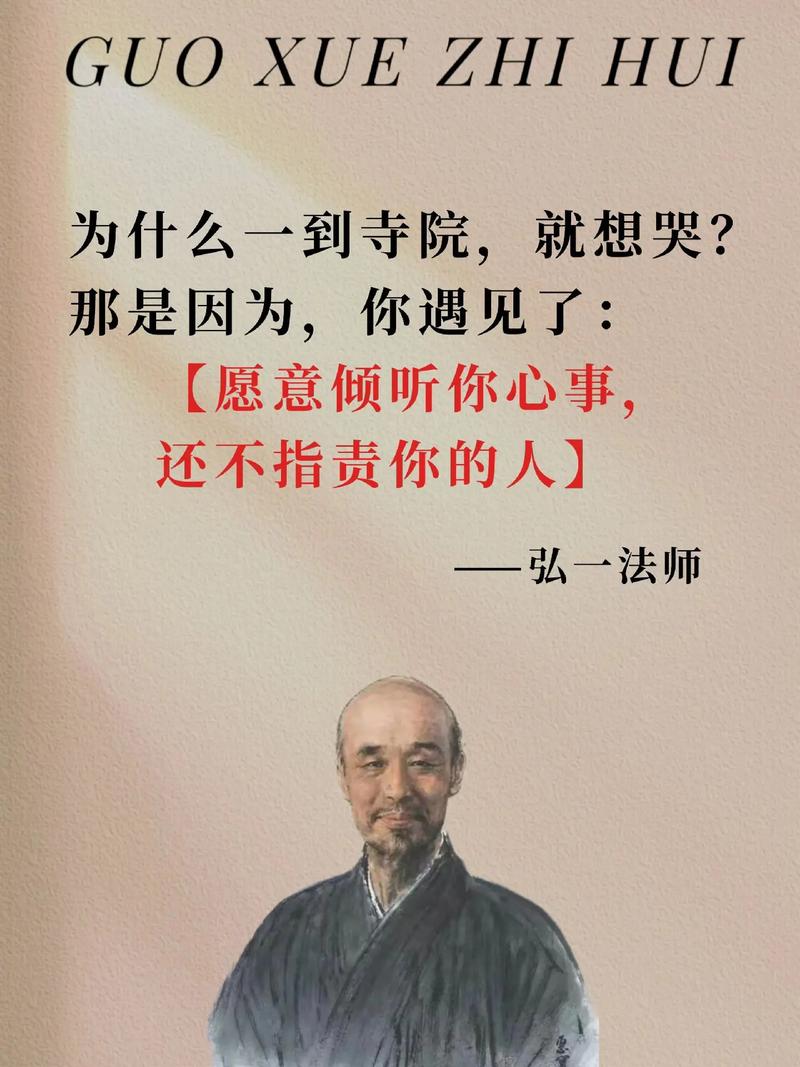 GUO XUE ZHI HUI
为什么一到寺院，就想哭？
那是因为，你遇见了：
【愿意倾听你心事，
还不指责你的人】
——弘一法师